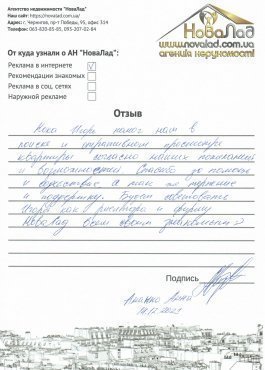 Агентство недвижимости "НоваЛад"
Наш сайт: https://novalad.com.ua/
Адрес: г. Чернигов, пр-т Победы, 95, офис 314
Телефон: 063-830-85-65, 095-207-02-84
НоваЛад
www.novalad.com.ua
агенція нерухомості
От куда узнали о АН "НоваЛад":
Реклама в интернете
Рекомендации знакомых
Реклама в соц. сетях
Наружной рекламе
Отзыв
Игорь помог нам в
поиске и оперативном просмотре
квартиры согласно наших пожеланий
и возможностей Спасибо за помощь
и а так же терпение
и поддержку. Будем советовать
Игоря как риелтора и фирму
НоваЛад всем своим знакомым
Подпись